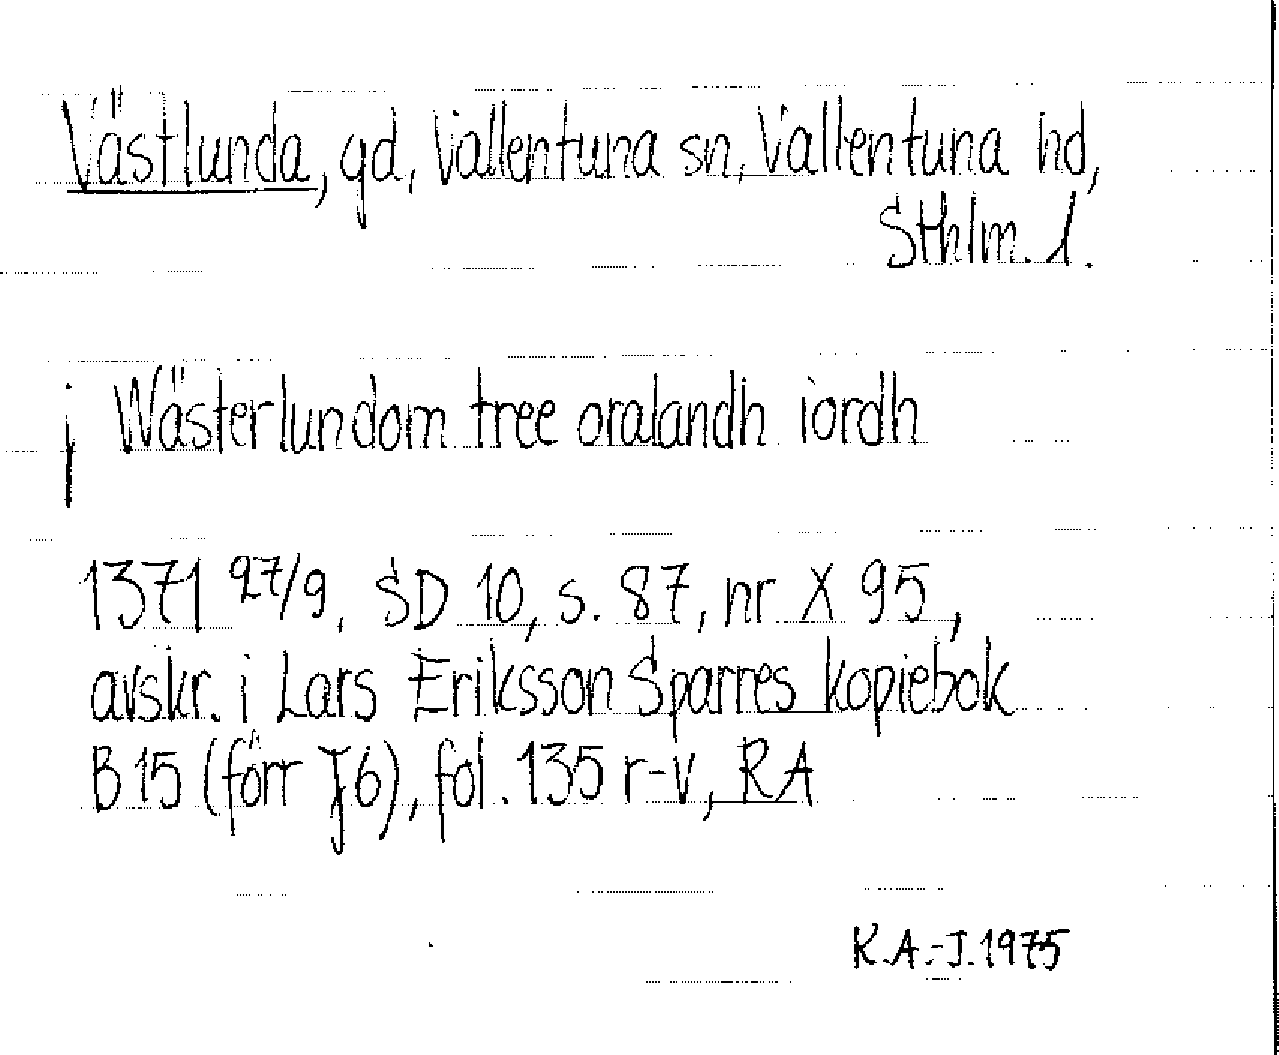 Västlunda, gd, Vallentuna sn, Vallentuna hd,
Sthlm. l.
j Wästerlundom tree oralandh iordh
1371 27/9, SD 10, s. 87, nr X 95,
avskr. i Lars Eriksson Sparres kopiebok
B 15 (förr J 6), fol. 135 r-v, RA
K.A.-J. 1975